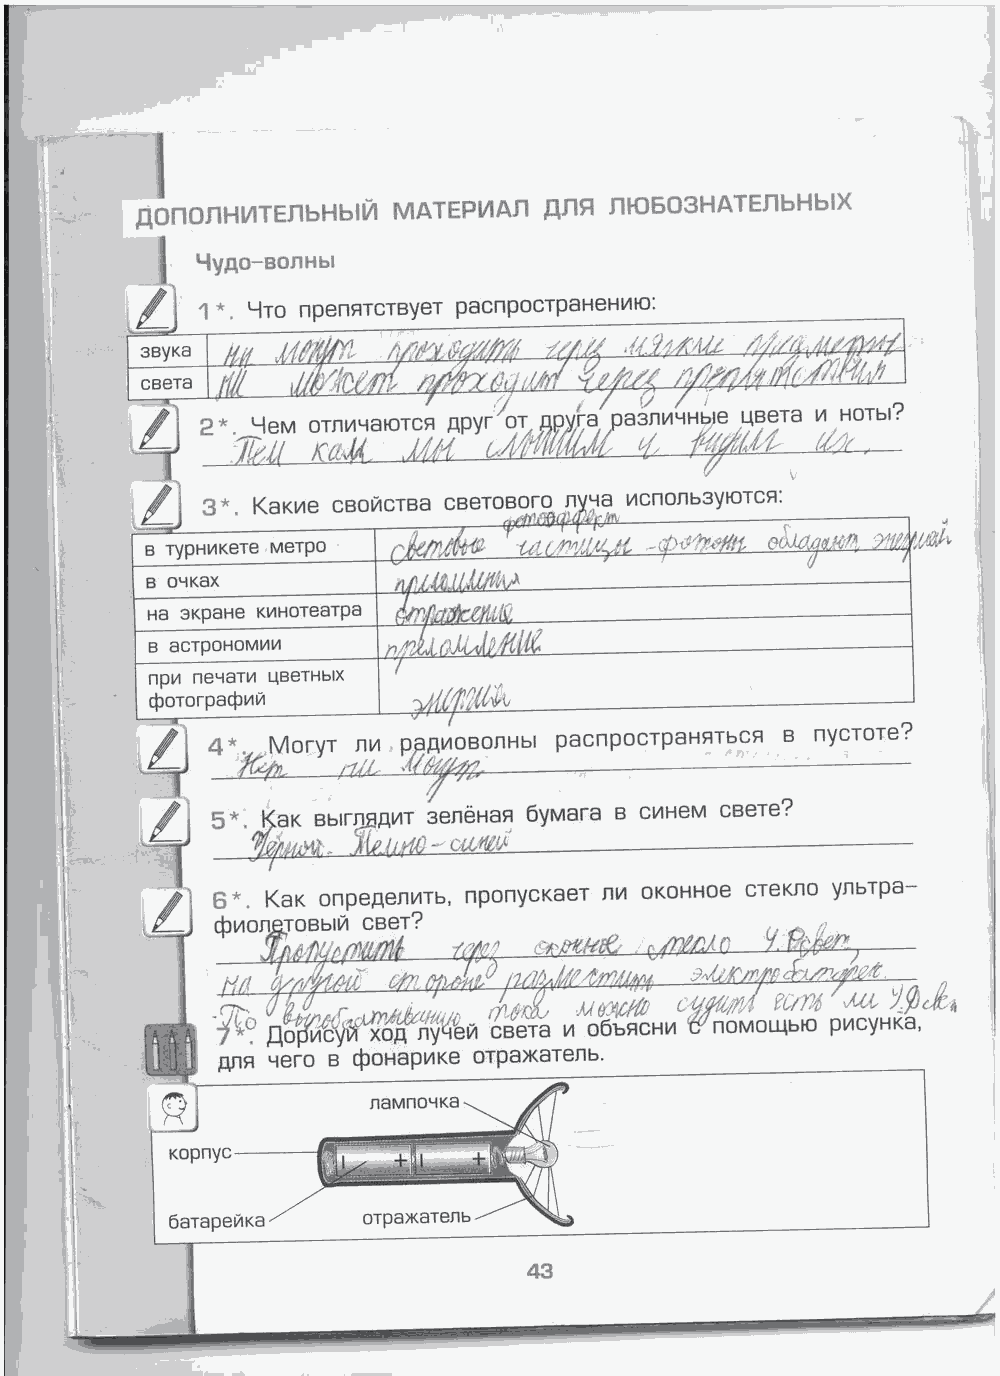 ДОПОЛНИТЕЛЬНЫЙ МАТЕРИАЛ ДЛЯ ЛЮБОЗНАТЕЛЬНЫХ
Чудо-волны
1*. Что препятствует распространению:
звука ни могут проходить через мягкие предметы
света ни может проходит через препятствия
2*. Чем отличаются друг от друга различные цвета и ноты?
Тем как мы слышим и видим их.
3*. Какие свойства светового луча используются:
фотоэффект
в турникете метро световые частицы - фотоны обладают энергией
в очках преломления
на экране кинотеатра отражение
в астрономии преломление
при печати цветных
фотографий энергия
4*. Могут ли радиоволны распространяться в пустоте?
Нет ни могут.
5*. Как выглядит зелёная бумага в синем свете?
Чёрной. Темно-синей
6*. Как определить, пропускает ли оконное стекло ультра-
фиолетовый свет?
Пропустить через оконное стекло У.Ф свет,
на другой стороне разместить
По вырабатыванию тока можно судить есть ли У.Ф све
7*. Дорисуй ход лучей света и объясни с помощью рисунка,
для чего в фонарике отражатель.
лампочка
корпус
- + - +
батарейка
отражатель
43